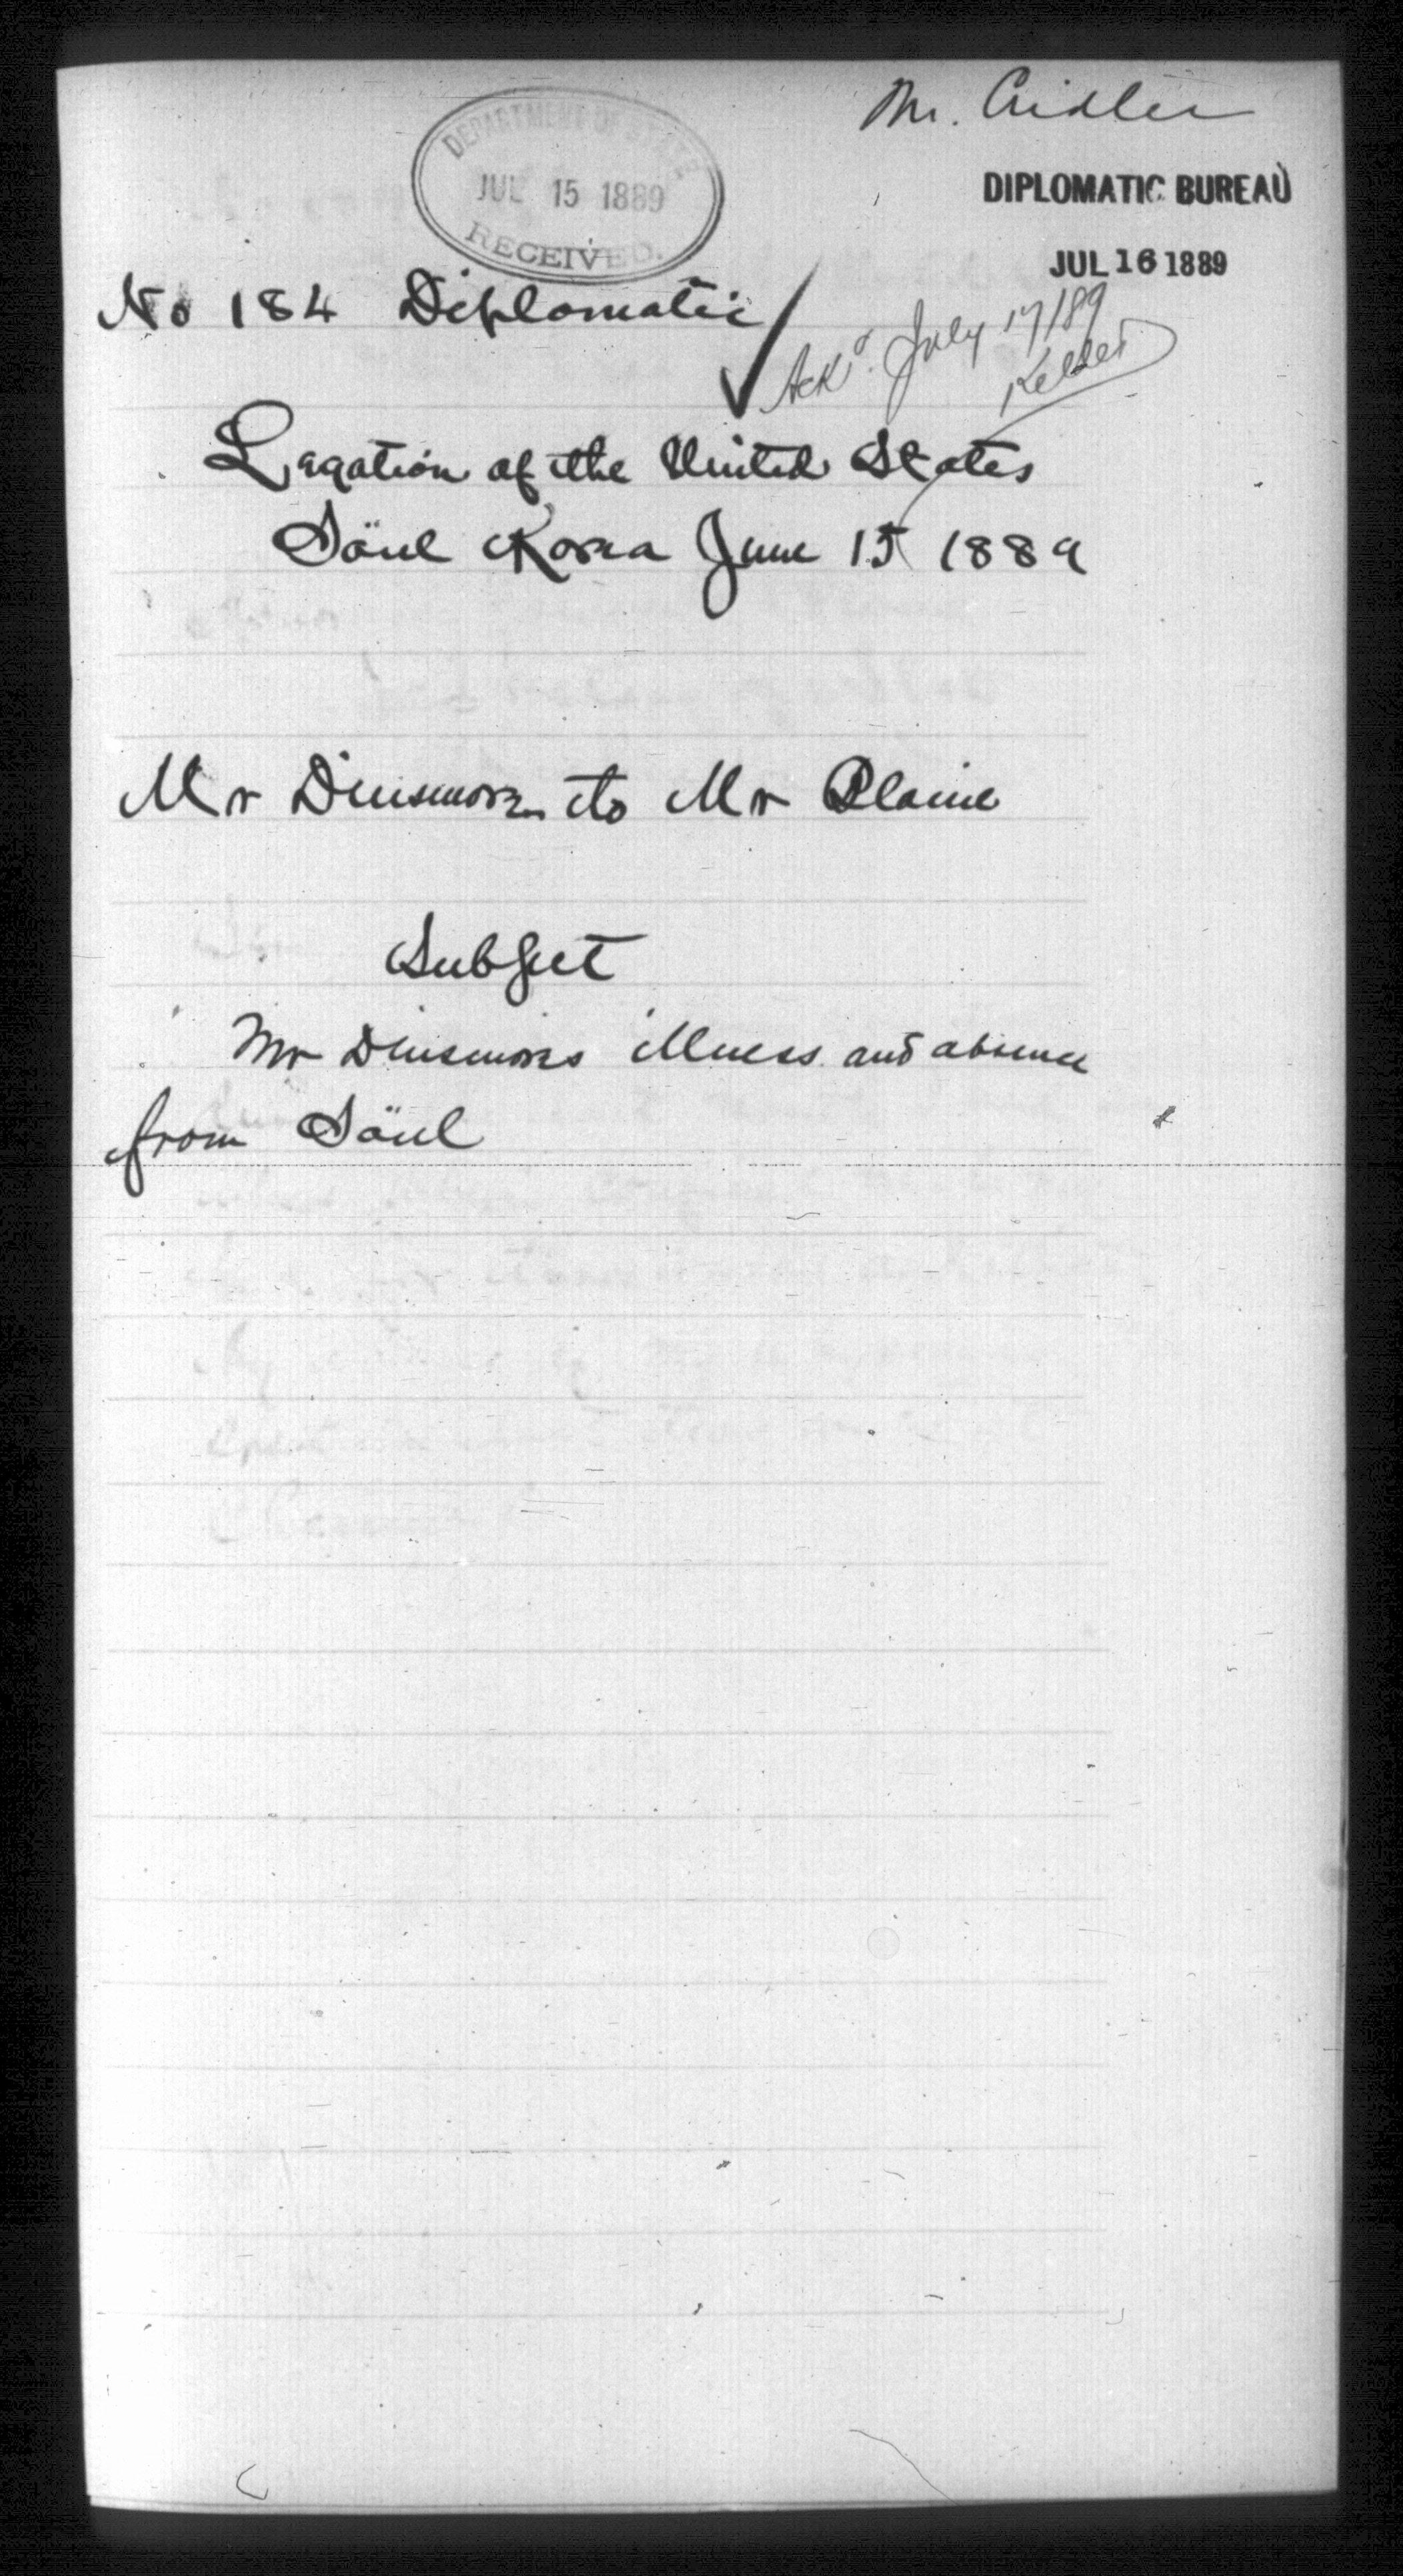 Mr. Cridler
DEPARTMENT OF STATE
JUL 15 1889
RECEIVED.
DIPLOMATIC BUREAU
JUL 16 1889
No 184 Diplomatic
Ackd. July 17/89
Legation of the United States
Söul Korea June 15 1889
Mr Dinsmore to Mr Blaine
Subject
Mr Dinsmores illness and absence
from Söul